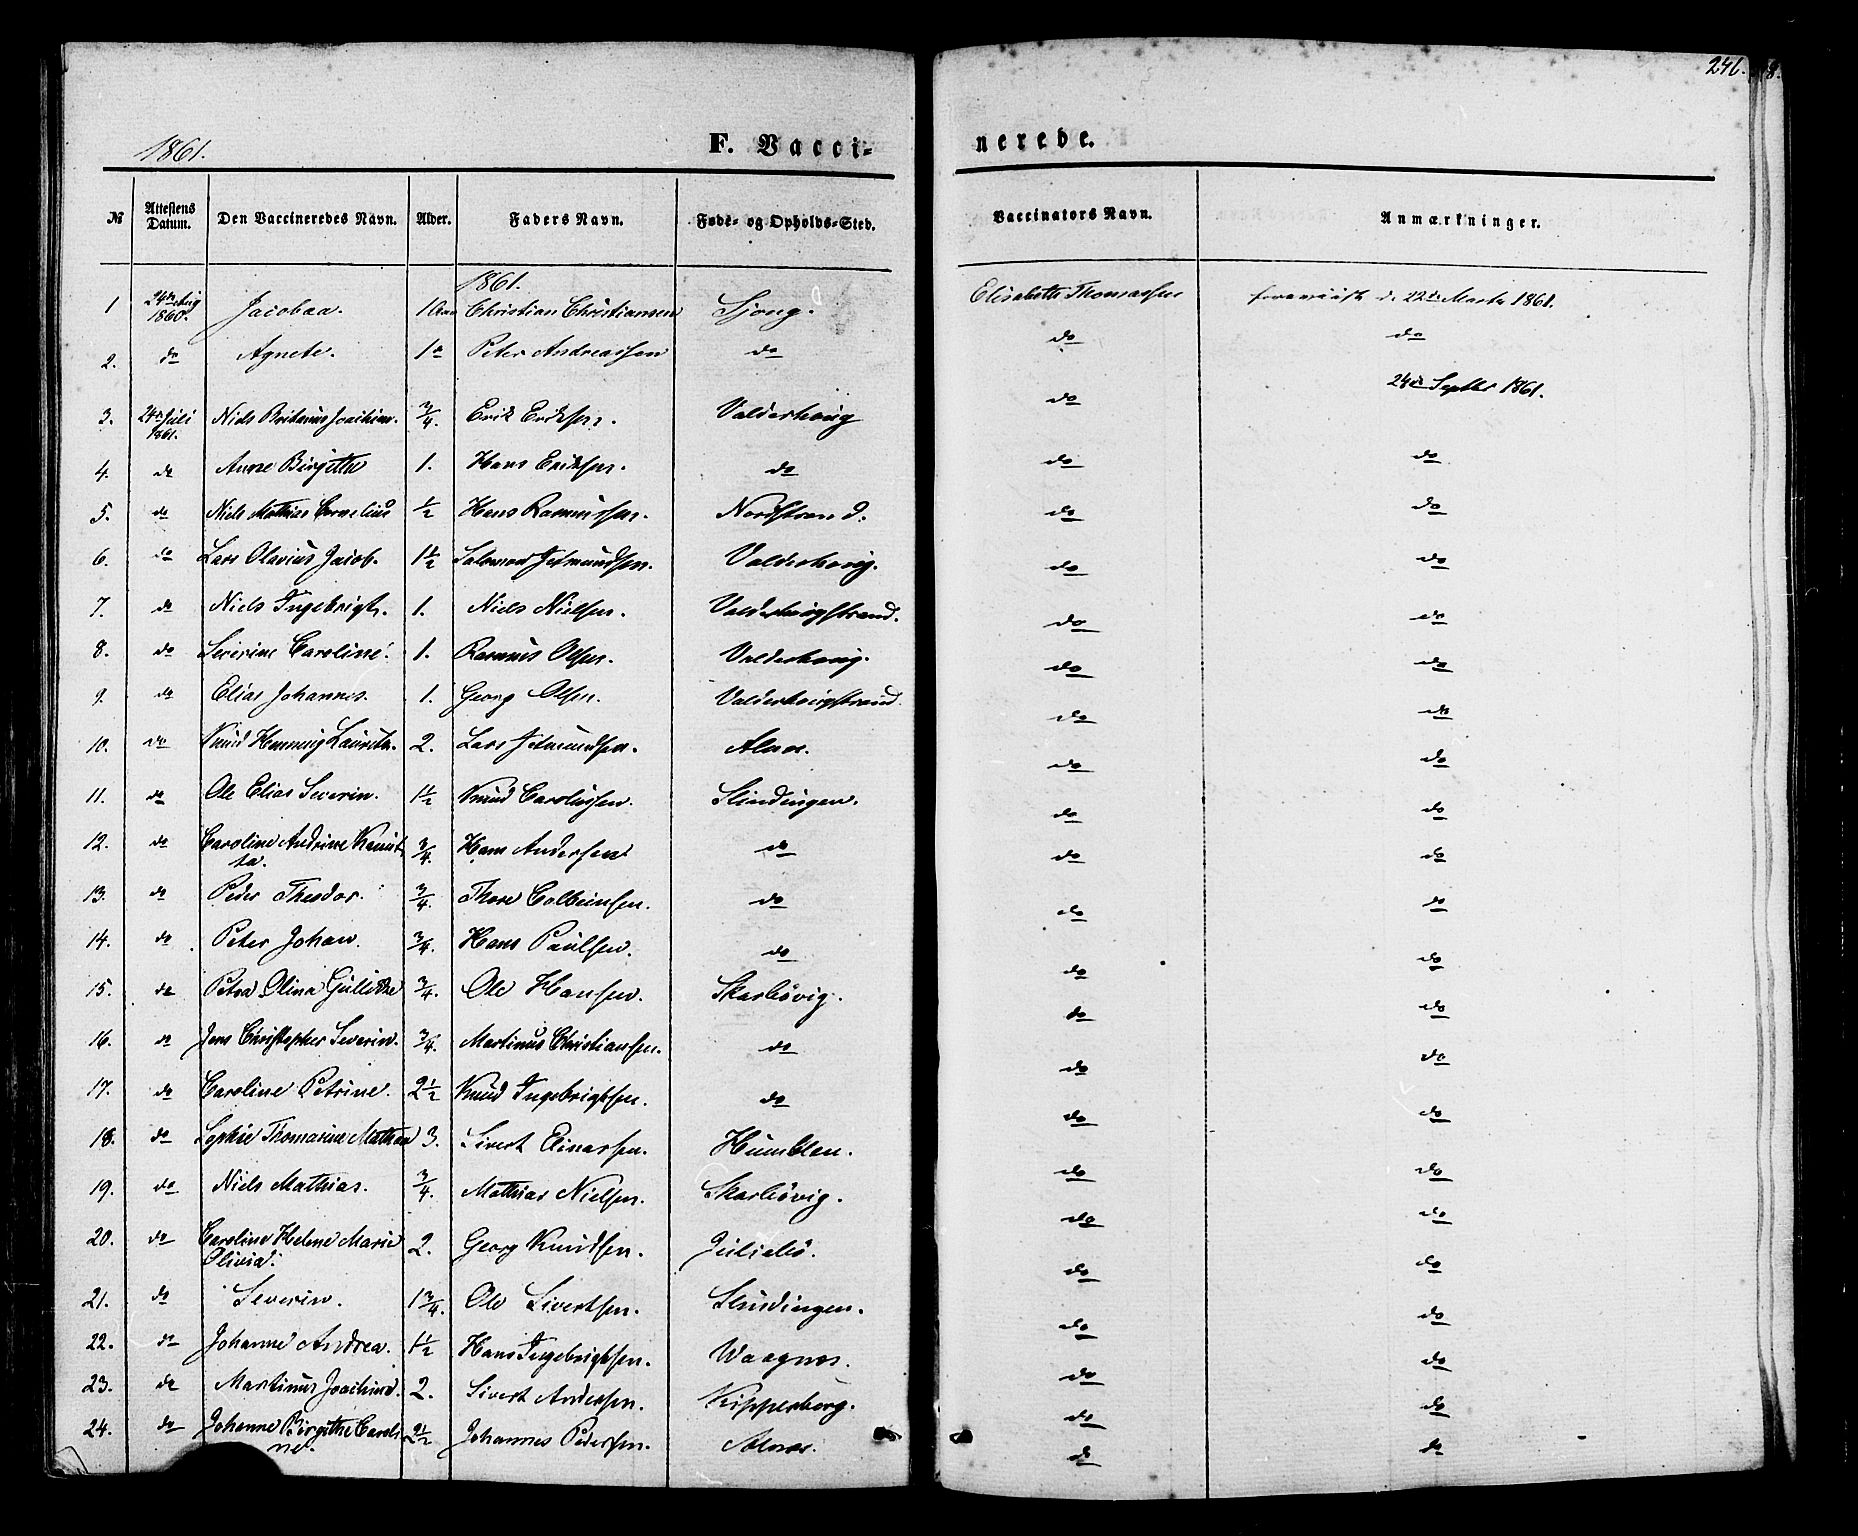 246.
1861.
F. Vacci- nerede.
№ Attestens Datum. Den Vaccineredes Navn. Alder. Faders Navn. Føde- og Opholds-Sted. Vaccinators Navn. Anmærkninger.
1861.
1 24de Aug 1860. Jacobaa. 1 Aar Christian Christiansen Sjong. Elisabeth Thomassen foreviist d. 22de Marts 1861.
2. do Agnete. 1 Peter Andreassen do do do
3. 24de Juli 1861. Niels Britanus Joachim. 3/4. Erik Eriksen. Valderhoug do 24de Septbr 1861.
4. do Anne Birgitte 1. Hans Eriksen. do do do
5. do Niels Mathias Cornelius 1/2 Hans Rasmussen. Nordstrand. do do
6. do Lars Olavius Jacob. 1 1/2 Salomon Jetmundsen. Valderhoug. do do
7. do Niels Ingebrigt. 1. Niels Nielsen. Valderhougstrand. do do
8. do Severine Caroline. 1. Rasmus Olsen. Valderhoug. do do
9. do Elias Johannes. 1. Georg Olsen. Valderhougstrand. do do
10. do Knud Henning Lauritz. 2. Lars Jetmundsen. Alnæs. do do
11. do Ole Elias Severin. 1 1/2 Knud Carolussen. Slindingen. do do
12. do Caroline Andrine Knuts
ta. 3/4. Hans Andersen do do do
13. do Peder Theodor. 3/4. Thore Colbeinsen. do do do
14. do Peter Johan. 3/4. Hans Paulsen. do do do
15. do Petra Olina Gullikke 3/4. Ole Hansen. Skarbøvig. do do
16. do Jens Christopher Severin. 3/4. Martinus Christiansen. do do do
17. do Caroline Petrine. 2 1/2 Knud Ingebrigtsen. do do do
18. do Sophie Thomasine Mathea 3. Sivert Einarsen. Humblen. do do
19. do Niels Mathias. 3/4. Mathias Nielsen. Skarbøvig. do do
20. do Caroline Helene Marie
Olivia. 2. Georg Knudsen. Juliebø. do do
21. do Severin. 1 3/4. Ole Sivertsen. Slindingen. do do
22. do Johanne Andrea. 1 1/2 Hans Ingebrigtsen. Waagnes. do do
23. do Martinus Joachim. 2. Sivert Andersen. Kipperberg. do do
24. do Johanne Birgithe Caroli
ne. 2 1/2 Johannes Pedersen. Alnæs. do do